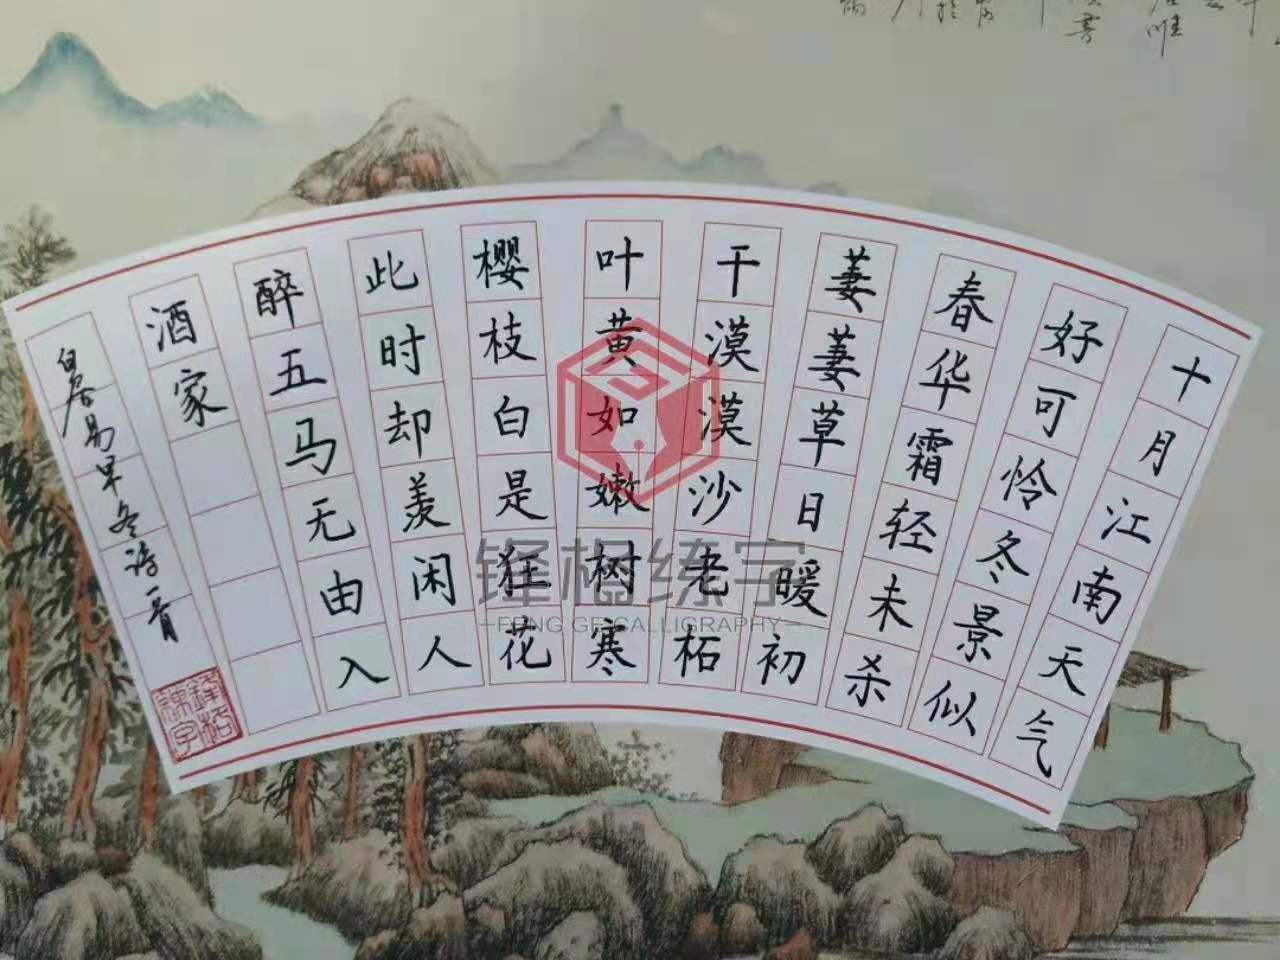 十月江南天气
好可怜冬景似
春华霜轻未杀
萋萋草日暖初
干漠漠沙老柘
叶黄如嫩树寒
樱枝白是狂花
此时却羡闲人
醉五马无由入
酒家
白居易早冬诗一首
鋒格
練字
锋格练字
FENG GE CALLIGRAPHY